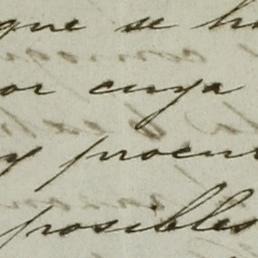 que se h
or cuya
y procur
posibles